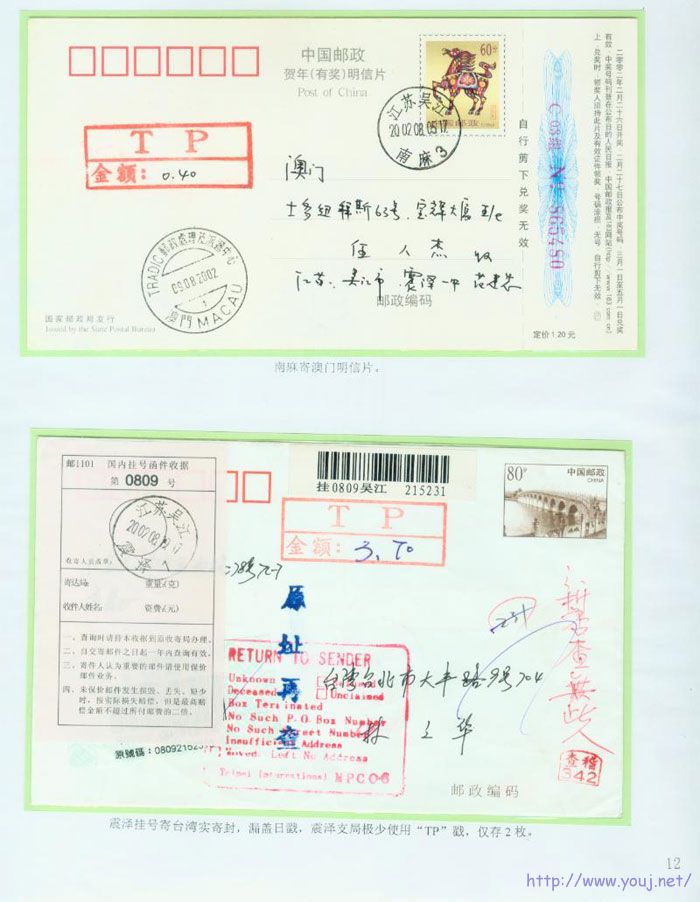 中国邮政
贺年(有奖)明信片
Post of China
60分
江苏吴江
2002.08.05.17
南麻3
T P
金额: 0.40
澳门
士多纽拜斯63号,宝
任人杰 收
江苏 吴江市 震泽一中
邮政编码
TRADIC 郵政處理及派遞中心
09.08.2002
1
澳門 MACAU
国家邮政局发行
Issued by the State Postal Bureau
定价1.20元
自行剪下兑奖无效
C 03组 Nº 865480
南麻寄澳门明信片。
邮1101 国内挂号函件收据
第 0809 号
江苏吴江
震泽
收寄人员盖章:
寄达局: 重量(克)
收件人姓名: 资费(元)
一、查询时请持本收据到原收寄局办理。
二、自交寄邮件之日起一年内查询有效。
三、寄件人认为重要的邮件请使用保价
邮件业务。
四、未保价邮件发生损毁、丢失、短少
时,按实际损失赔偿,但是最高赔
偿金额不超过所付邮费的二倍。
挂0809吴江 215231
80分
中国邮政
CHINA
T P
金额: 3.70
原址再查
RETURN TO SENDER
Unknown
Deceased Unclaimed
Box Terminated
No Such P.O Box Number
No Such Street Number
Insufficient Address
Moved, Left No Address
Taipei International NPC06
台湾台北市大丰路9号704
林立华
查无此人
稽查
342
邮政编码
原號碼:
震泽挂号寄台湾实寄封,漏盖日戳,震泽支局极少使用“TP”戳,仅存2枚。
12
http://www.youj.net/